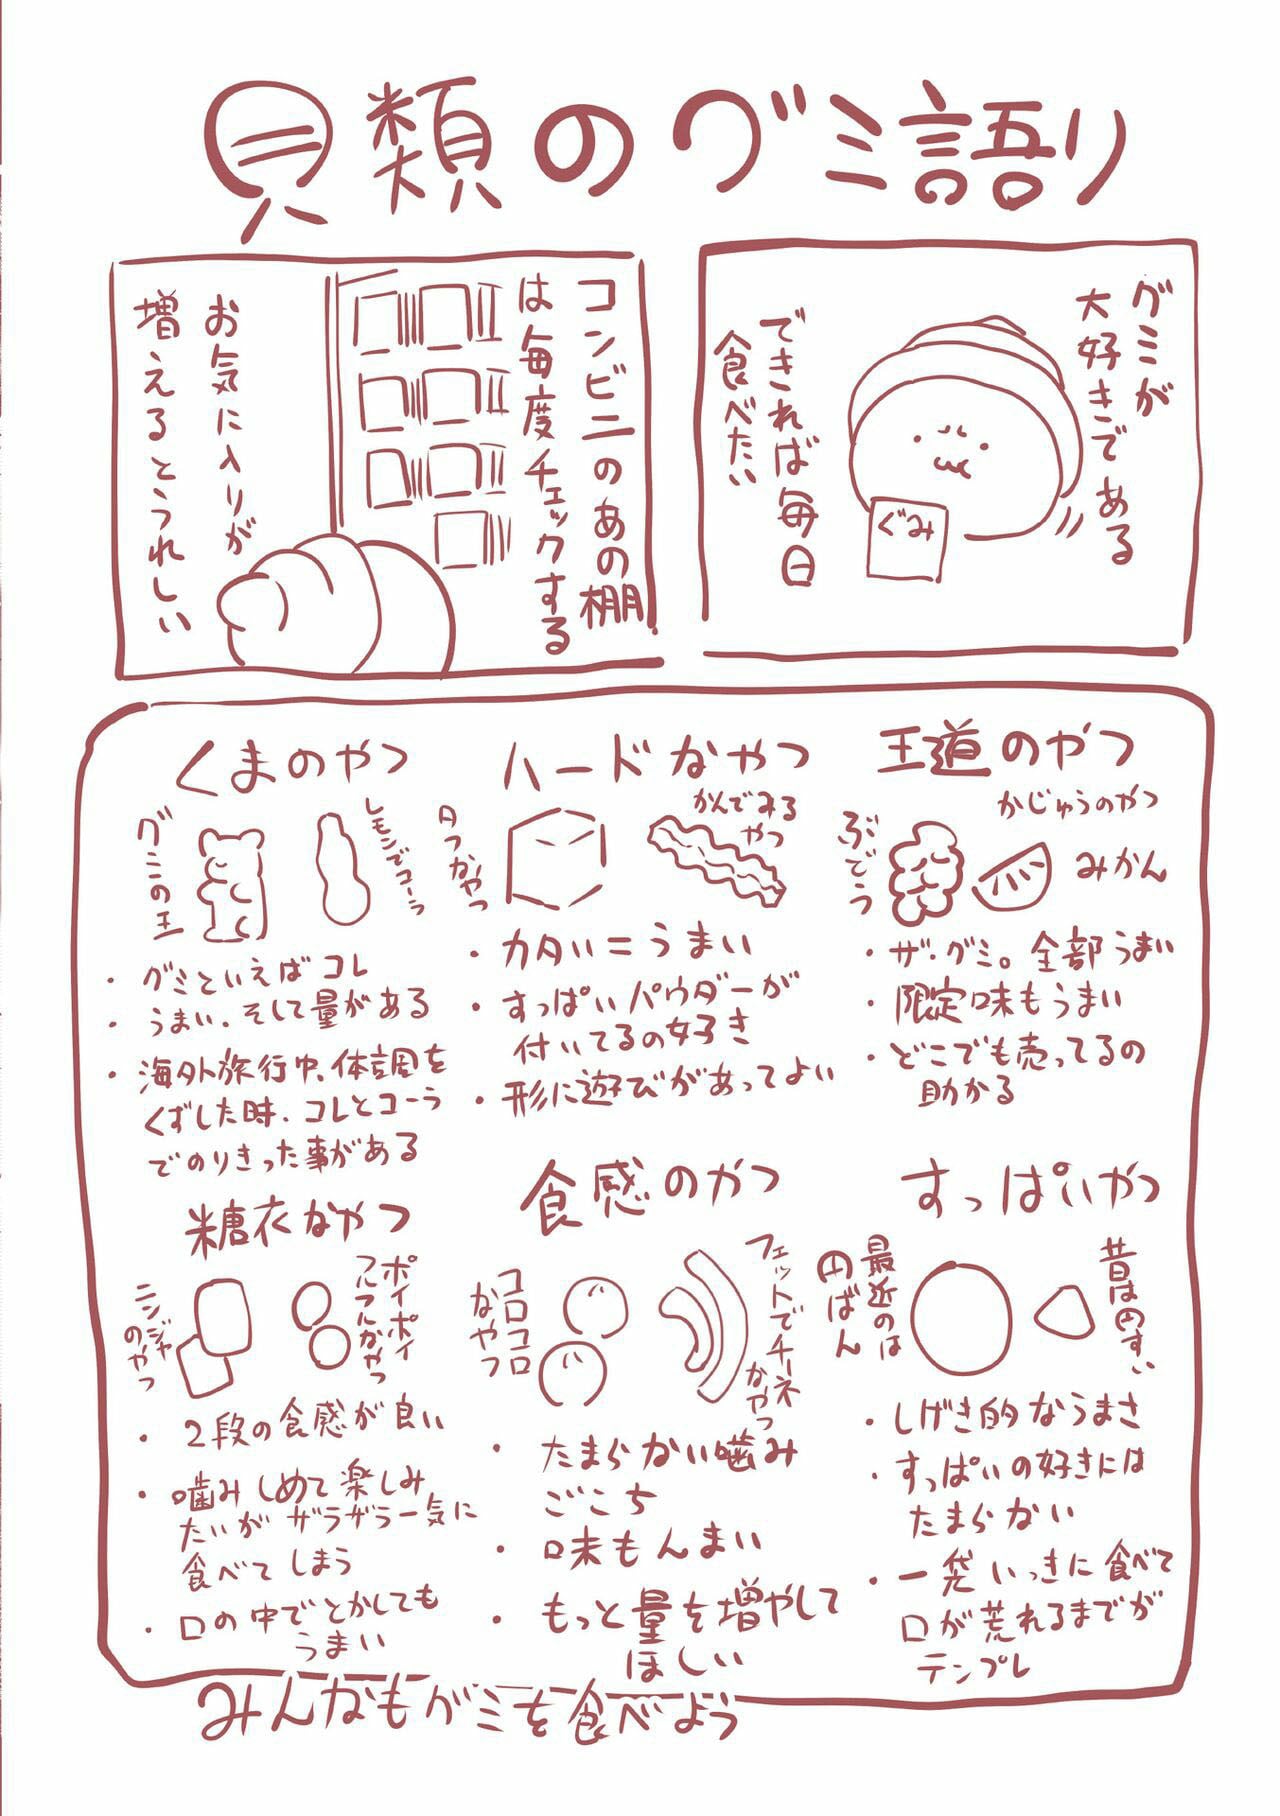 貝類のグミ語り
グミが
大好きである
できれば毎日
食べたい
ぐみ
コンビニのあの棚
は毎度チェックする
お気に入りが
増えるとうれしい
王道のやつ
かじゅうのやつ
ぶどう
みかん
・ザ・グミ。全部うまい
・限定味もうまい
・どこでも売ってるの
助かる
ハードなやつ
かんでみる
やつ
タフなやつ
・カタい=うまい
・すっぱいパウダーが
付いてるの好き
・形に遊びがあってよい
くまのやつ
グミの王
レモンでコーラ
・グミといえばコレ
・うまい、そして量がある
・海外旅行中、体調を
くずした時、コレとコーラ
でのりきった事がある
すっぱいやつ
昔は円すい
最近のは
円ばん
・しげき的なうまさ
・すっぱいの好きには
たまらない
・一袋いっきに食べて
口が荒れるまでが
テンプレ
食感のやつ
フェットでチーネ
なやつ
コロコロ
なやつ
・たまらない噛み
ごこち
・味もんまい
・もっと量を増やして
ほしい
糖衣なやつ
ポイポイ
フルフルなやつ
ニンジャ
のやつ
・2段の食感が良い
・噛みしめて楽しみ
たいがザラザラ一気に
食べてしまう
・口の中でとかしても
うまい
みんなもグミを食べよう